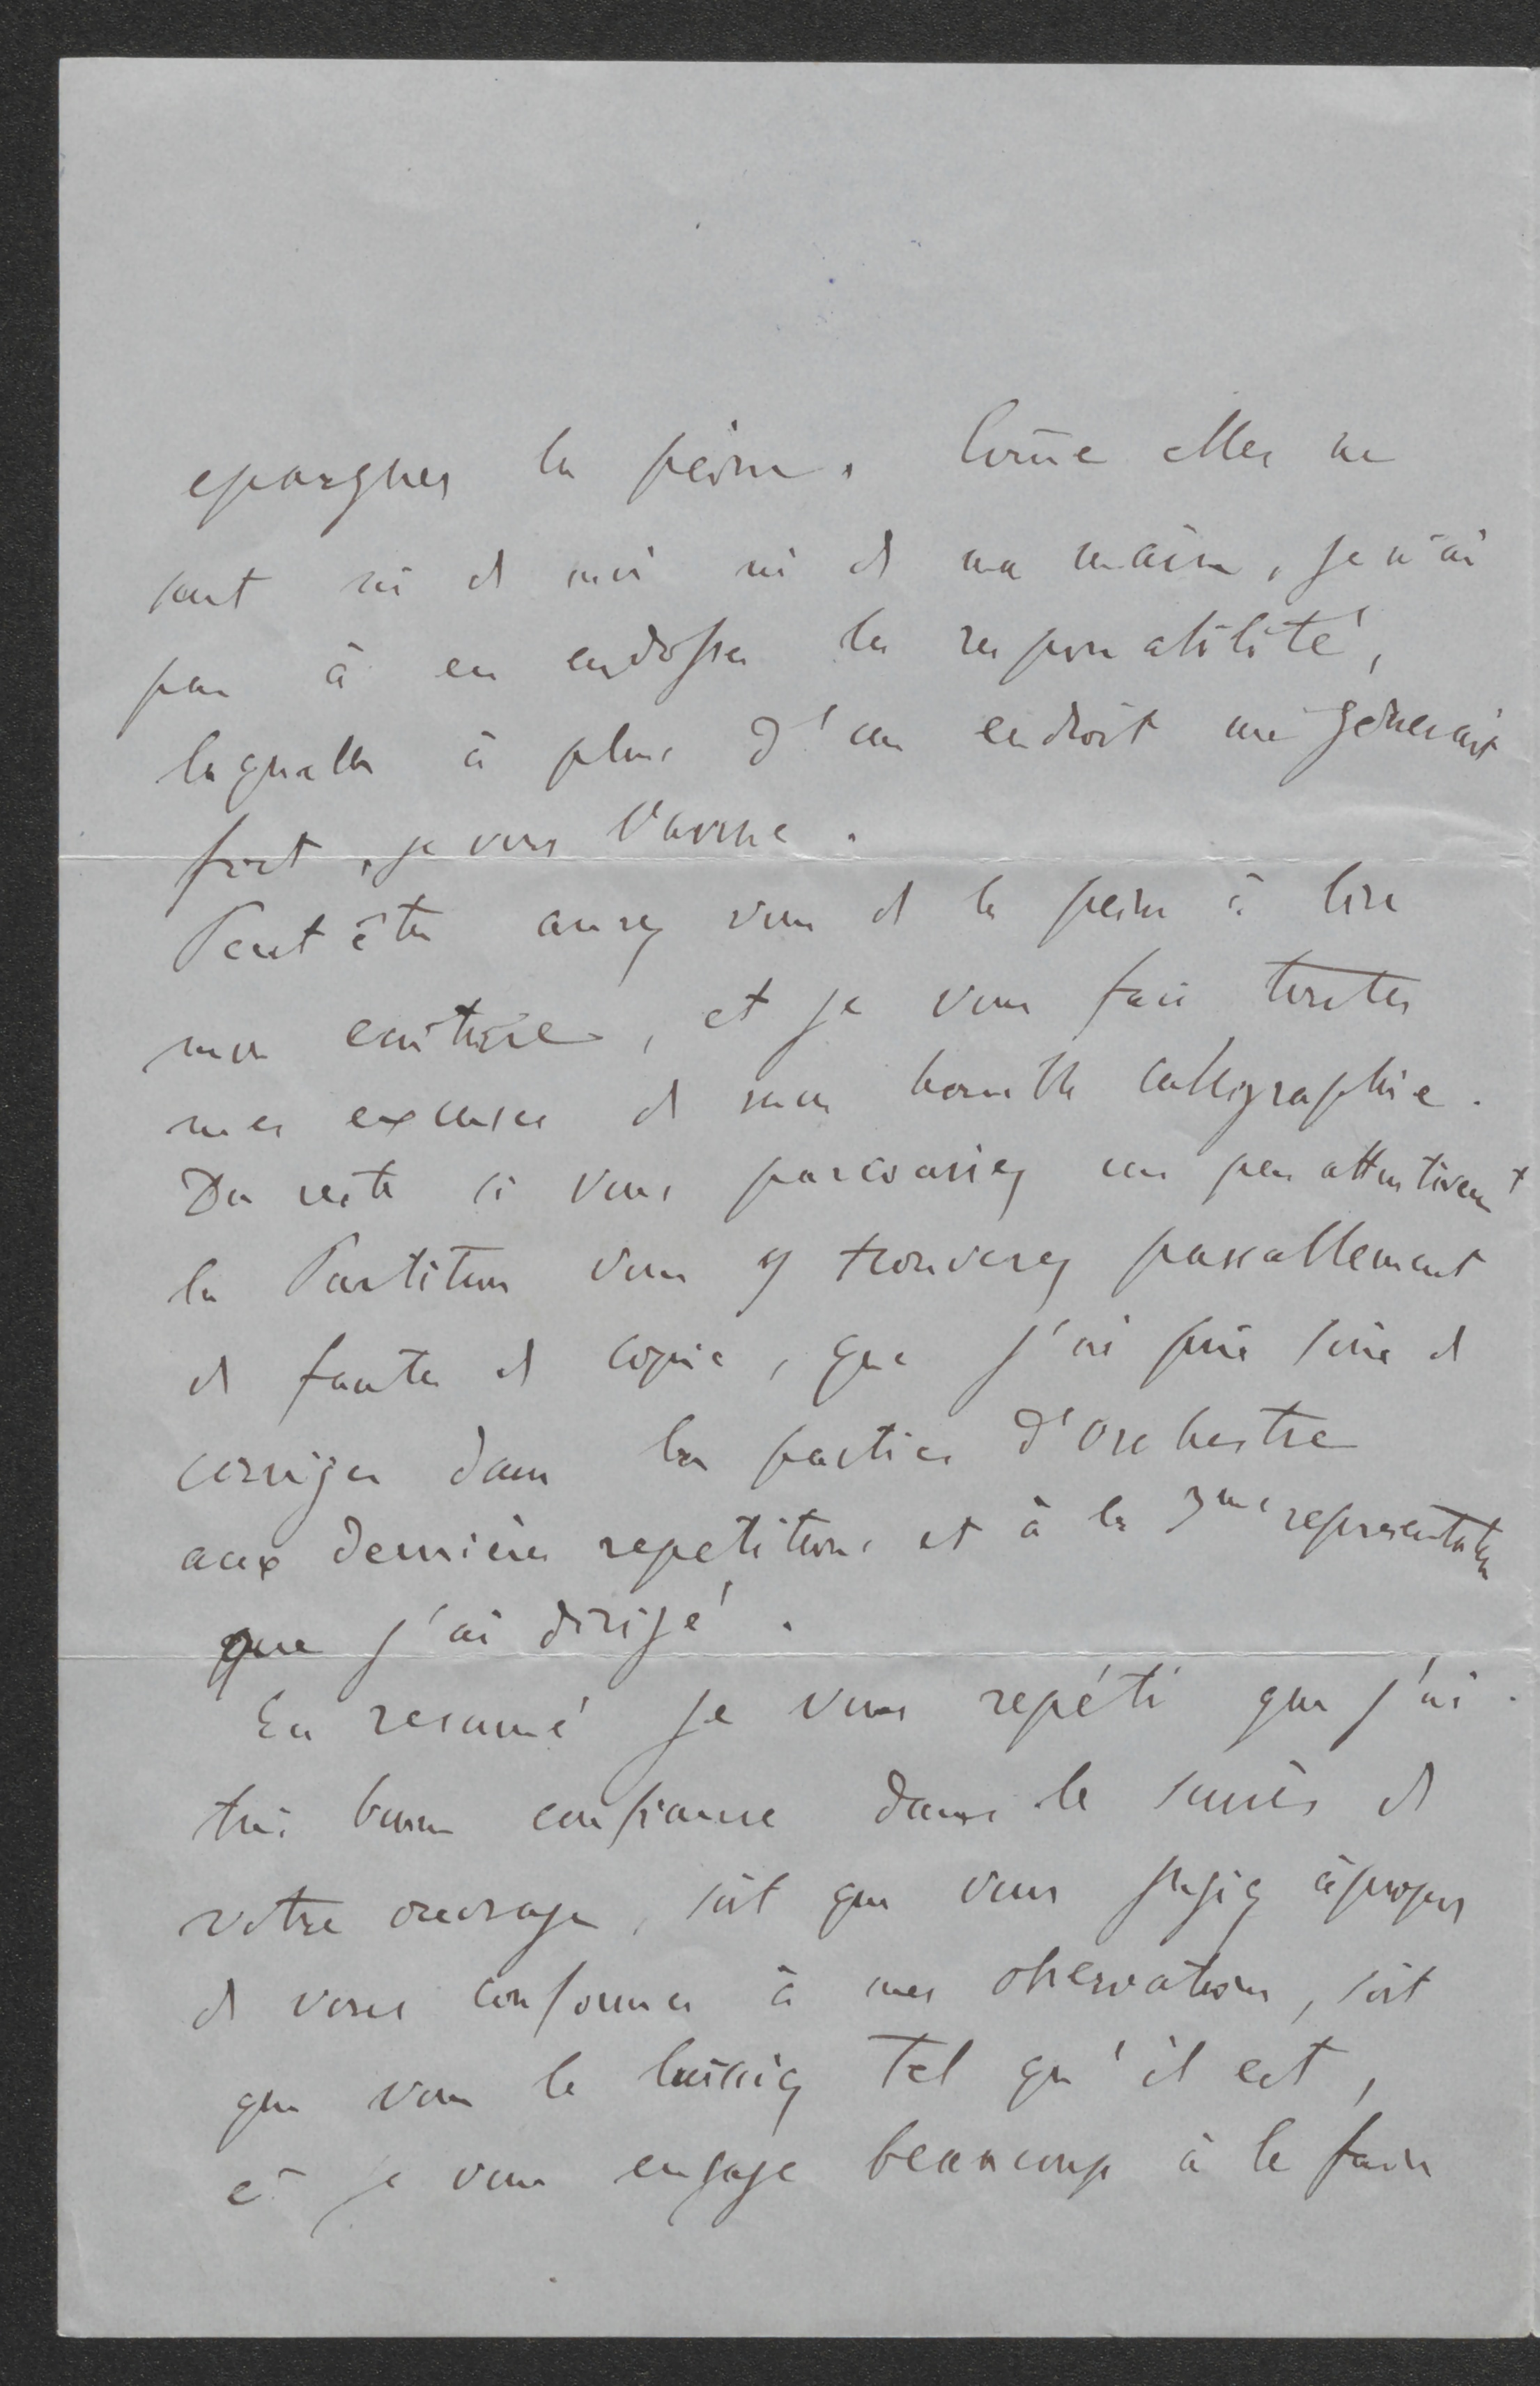 epargner la peine. Com̄e elles ne
sont ni de moi ni de ma main, je n'ai
pas à en endosser la responsabilité,
laquelle à plus d'un endroit me gênerait
fort, je vous l'avoue.
Peut être aurez vous de la peine à lire
mon ecriture, et je vous fais toutes
mes excuses de mon horrible calligraphie.
Du reste si vous parcouriez un peu attentivemt
la Partition vous y trouverez passablement
de fautes de copie, que j'ai pris soin de
corriger dans les parties d'Orchestre
aux dernieres repetitions et à la 3me representation
que j'ai dirigé.
En resumé je vous repéte que j'ai
très bonne confiance dans le succès de
votre ouvrage, soit que vous jugiez àpropos
de vous conformer à mes observations, soit
que vous le laissiez tel qu'il est,
et je vous engage beaucoup à le faire